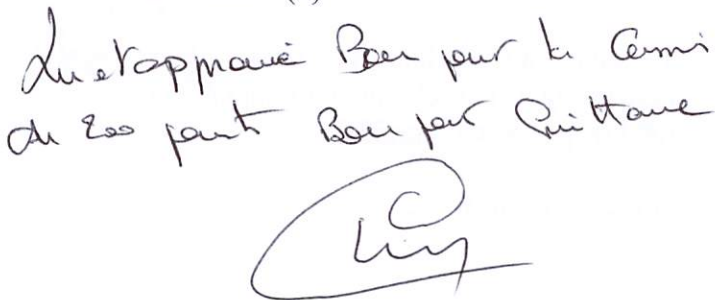 Lu et approuvé Bon pour la Cession
de 200 parts Bon pour Quittance